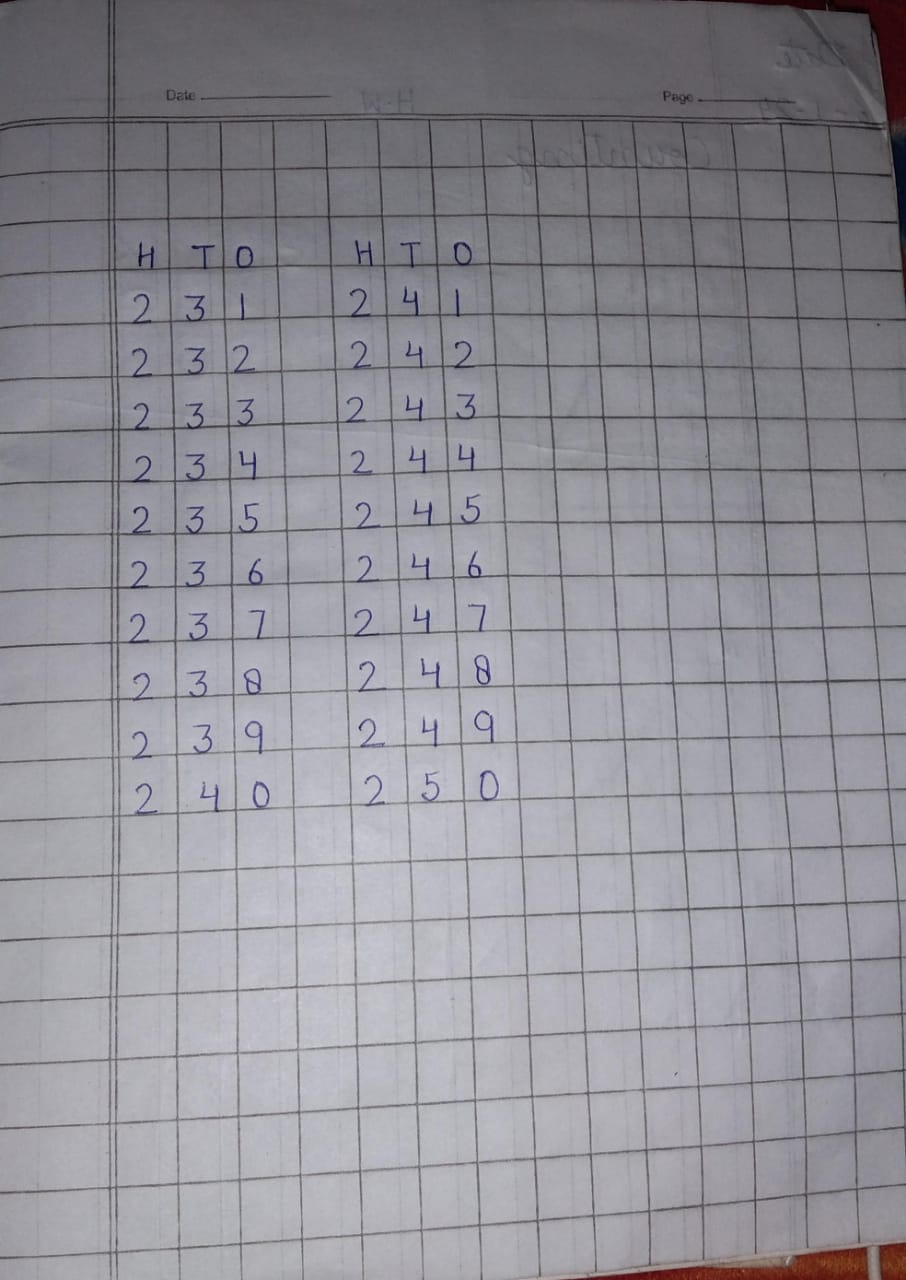 Date Page
H T O H T O
2 3 1 2 4 1
2 3 2 2 4 2
2 3 3 2 4 3
2 3 4 2 4 4
2 3 5 2 4 5
2 3 6 2 4 6
2 3 7 2 4 7
2 3 8 2 4 8
2 3 9 2 4 9
2 4 0 2 5 0